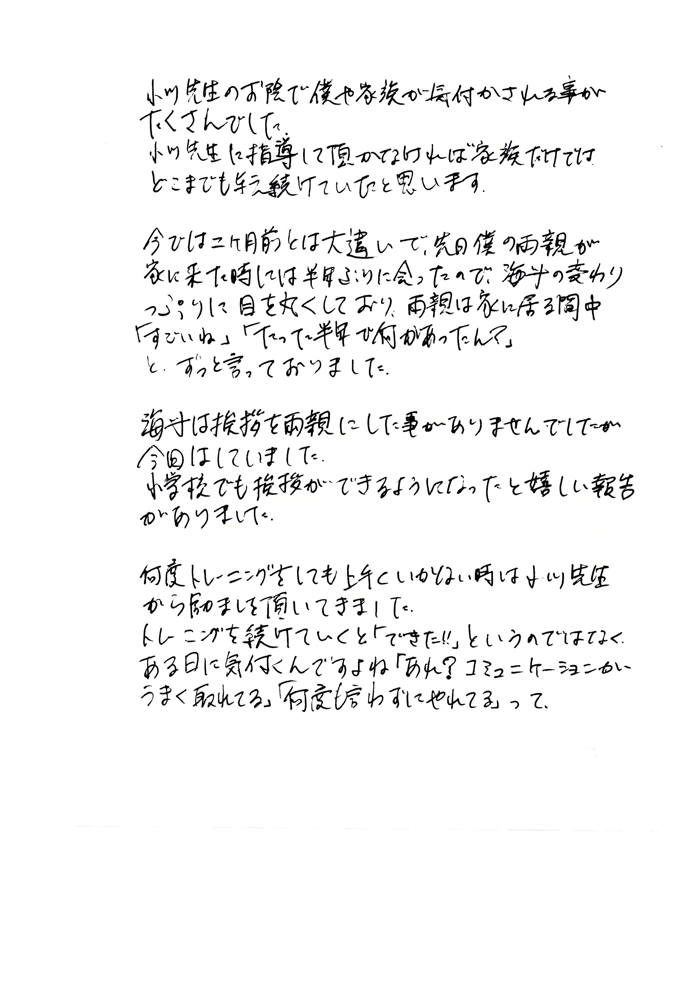 小川先生のお陰で僕や家族が気付かされる事が
たくさんでした。
小川先生に指導して頂かなければ家族だけでは
どこまでも与え続けていたと思います。
今では二ヶ月前とは大違いで、先日僕の両親が
家に来た時には半年ぶりに会ったので、海斗の変わり
っぷりに目を丸くしており、両親は家に居る間中
「すごいね」「たった半年で何があったん?」
と、ずっと言っておりました。
海斗は挨拶を両親にした事がありませんでしたが
今回はしていました。
小学校でも挨拶ができるようになったと嬉しい報告
がありました。
何度トレーニングをしても上手くいかない時は小川先生
から励ましを頂いてきました。
トレーニングを続けていくと「できた!!」というのではなく、
ある日に気付くんですよね「あれ?コミュニケーションが
うまく取れてる」「何度も言わずにやれてる」って、